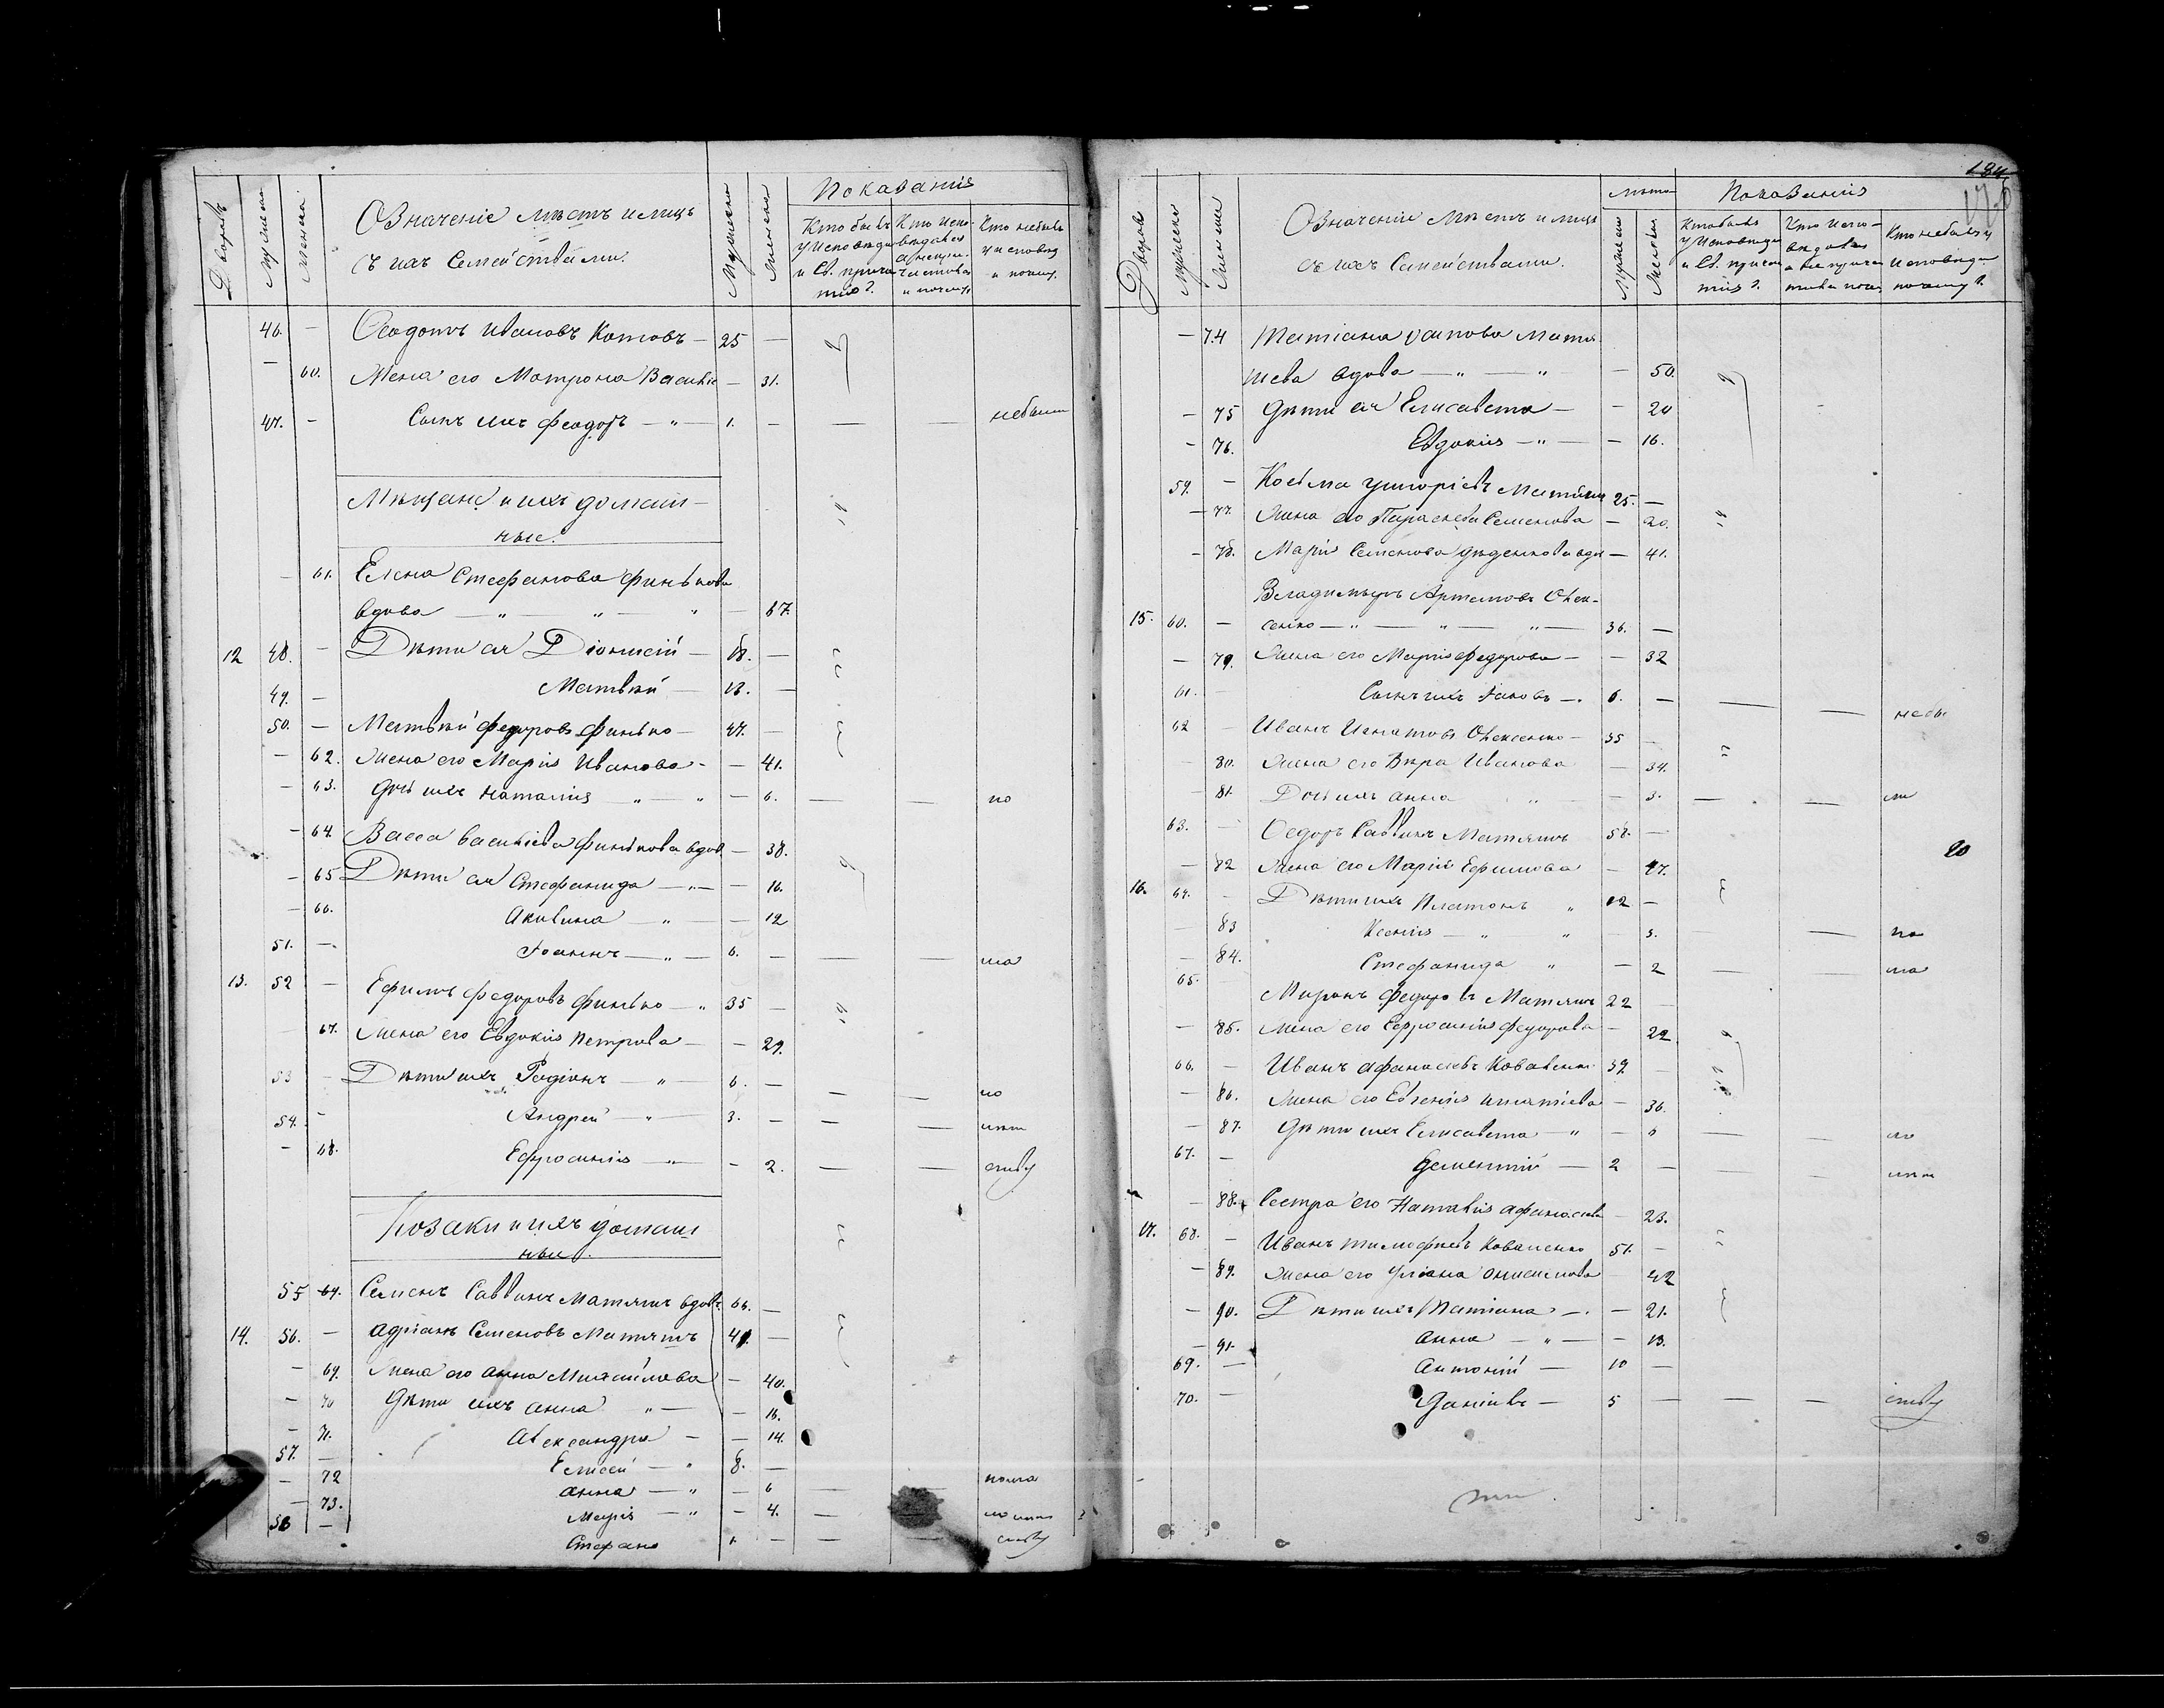 Дворовъ Мужеска Женска Означеніе мѣстъ и лицъ Мужеска Женска Показанія
съ ихъ Семействами. Кто былъ у Исповѣди и Св. причастія? Кто Исповѣдался а не причастился и почему Кто небылъ у исповѣд и почему.
46. — Ѳеодотъ Ивановъ Котовъ — 25 —
— 60. Жена его Матрона Василіе — 31.
47. — Сынъ ихъ Феодоръ — " — 1. — — — небыли
Мѣщане и ихъ домаш-
ные.
— 61. Елена Стефанова Финькова
вдова — " — " — " — 67.
12 48. — Дѣти ея Діонисій — 18. —
49. — Матвѣй — 13. —
50. — Матвѣй Федоровъ Финько — 47. —
— 62. Жена его Марія Иванова — — 41.
— 63. Дочь ихъ Наталія " — " — 6. — — по
— 64. Васса Василіева Финькова вдов. — 38.
— 65 Дѣти ея Стефанида — " — — 16.
— 66. Акилина — " — — 12
51. — Іоаннъ — " — 6. — — — ма
13. 52 — Ефимъ Федоровъ Финько — " 35 —
67. Жена его Евдокія Петрова — — 29.
53 — Дѣти ихъ Родіонъ — " — 6. — — — ло
54. — Андрей — " — 3. — — — лѣт
— 68. Ефросинія — " — — 2. — — ству
Козаки и ихъ домаш
ные.
55 Семенъ Саввинъ Матяшъ вдов. 66. —
14. 56. — Адріанъ Семеновъ Матяшъ 41. —
— 69. Жена его Анна Михайлова — 40.
— 70 Дѣти ихъ Анна " — — 16.
— 71. Александра — — 14.
57. — Елисей — " 8. —
— 72 Анна — " — 6 — — пома
— 73. Марія — " — 4. — ло
58 — Стефанъ 1. — — — ству
194
Дворовъ Мужеска Женска Означеніе мѣстъ и лицъ лѣта Показанія
съ ихъ Семействами. Мужеска Женска Кто былъ у Исповѣди и Св. причастія? Кто Испо-вѣдался а не причастился Кто небылъ у исповѣди почему?
— 74 Татіана Матя
шева вдова — " — " — 50.
— 75 Дѣти ея Елисавета — — 20
— 76. Евдокія — " — — 16.
59. — Косьма Григоріевъ Матяшъ 25. —
— 77. Жена его Параскева Семенова — 20.
— 78. Марія Семенова вдо — 41.
Владиміръ Артемовъ Олек-
15. 60. — сенко — " — " — " — 36. —
— 79. Жена его Марія Федорова — — 32
61. — Сынъ ихъ Іаковъ —. 6. — — — небы
62 — Иванъ Игнатовъ Олексенко — 35 —
80. Жена его Вѣра Иванова — 34.
— 81. Дочь ихъ Анна " — 3. — — ли
63. — Ѳедоръ Саввинъ Матяшъ 58. —
— 82 Жена его Марія Ефимова — 47.
16. 64. — Дѣти ихъ Платонъ " 12 —
— 83 Ксенія — " " — 3. — — по
— 84. Стефанида " — 2 — — ма
65. — Миронъ Федоровъ Матяшъ 22 —
— 85. Жена его Ефросинія Федорова — 22
66. — Иванъ Афанасіевъ Коваленко 39. —
— 86. Жена его Евгенія Игнатіева — 36.
— 87. Дѣти ихъ Елисавета — " — 6 — — ло
67. — Дементій — 2 — — — лѣт
— 88. Сестра его Наталія Афанасіева — 23.
17. 68. — Иванъ Тимофѣевъ Коваленко 51. —
— 89. Жена его Уліана Онисимова — 42
— 90. Дѣти ихъ Татіана —. — 21.
— 91. Анна — " — — 13.
69. — Антоній — 10 —
70. — Даніилъ — 5 — — — ству